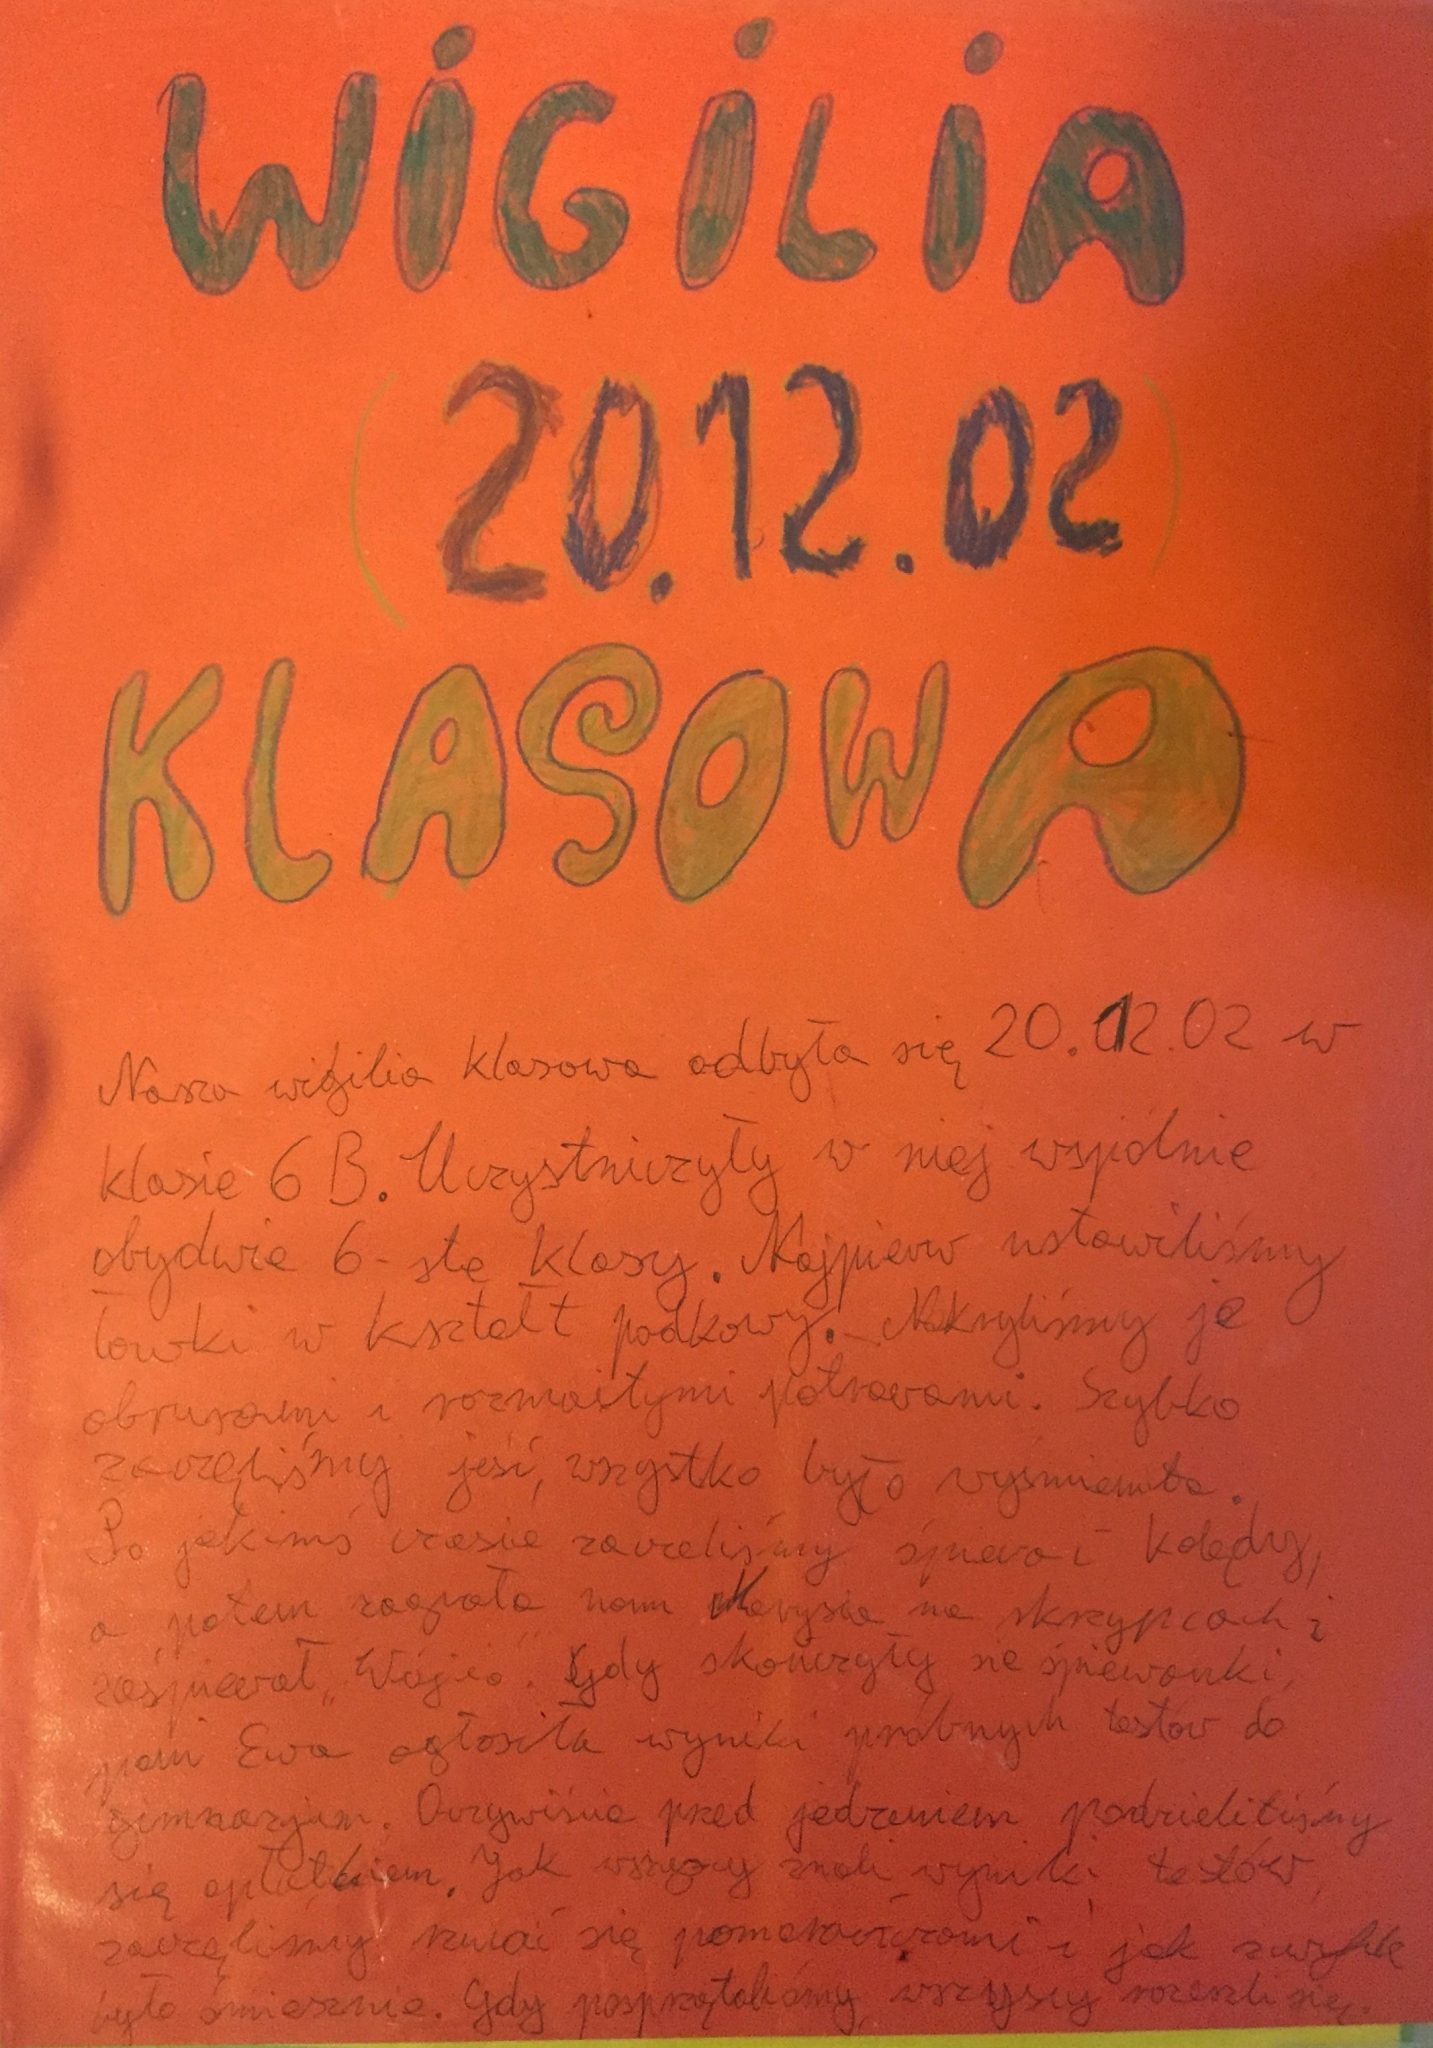 WiGiLiA
(20.12.02)
KLASOWA
Nasza wigilia klasowa odbyła się 20.12.02 w
klasie 6 B. Uczystniczyły w niej wspólnie
obydwie 6-ste klasy. Najpierw ustawiliśmy
ławki w kształt podkowy. Nakryliśmy je
obrusami i rozmaitymi potrawami. Szybko
zaczęliśmy jeść, wszystko było wyśmienite.
Po jakimś czasie zaczeliśmy śpiewać kolędy,
a potem zagrała nam Marysia na skrzypcach i
zaśpiewał "Wójcio". Gdy skończyły sie śpiewanki,
pani Ewa ogłosiła wyniki próbnych testów do
gimnazjum. Oczywiście przed jedzeniem podzieliliśmy
się opłatkiem. Jak wszyscy znali wyniki testów,
zaczęliśmy rzucać się pomarańczami i jak zwykle
było śmiesznie. Gdy posprzątaliśmy, wszyscy rozeszli się.